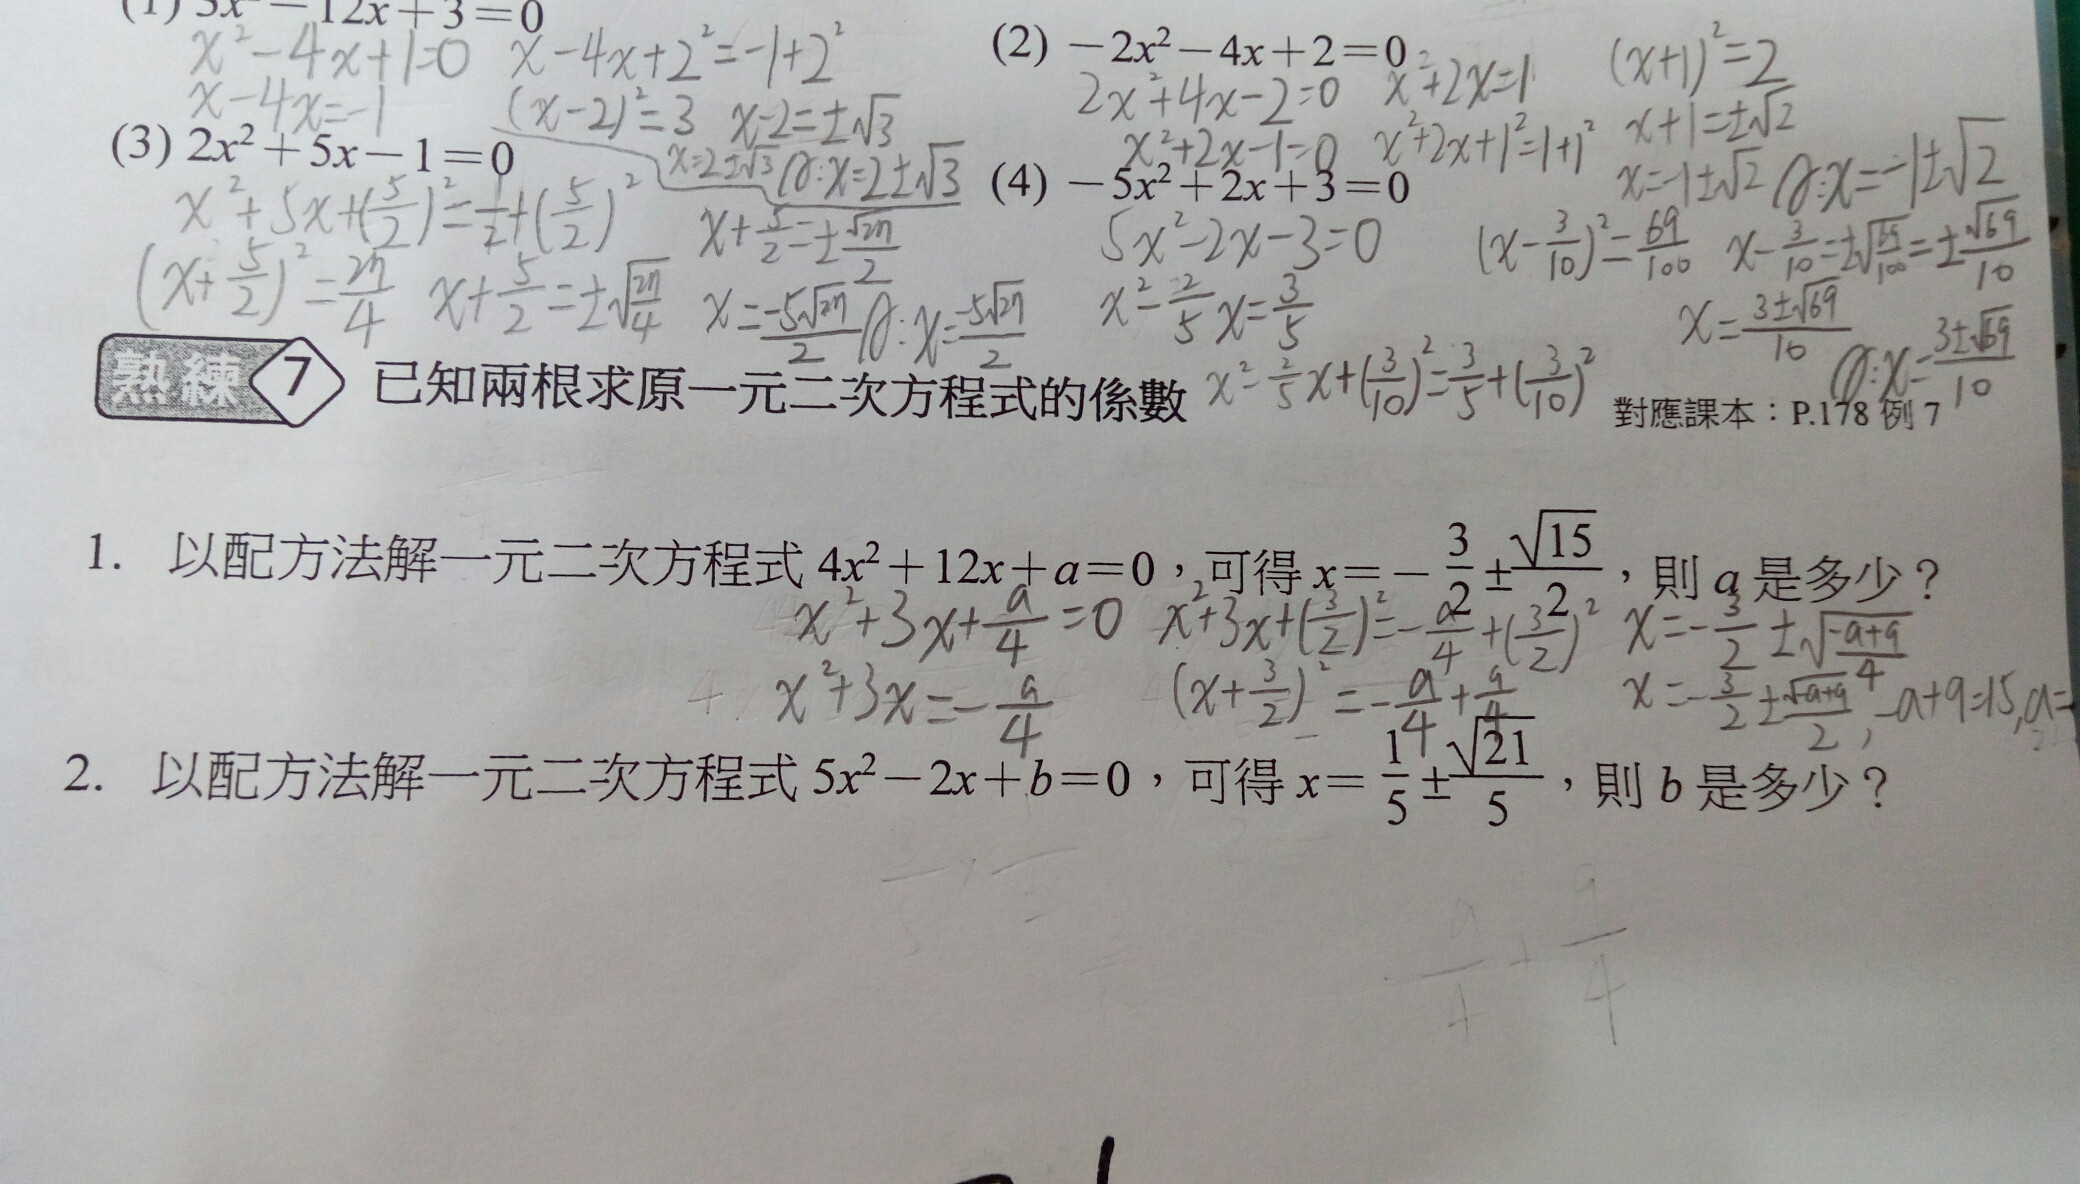 (1) 3x² − 12x + 3 = 0
x² − 4x + 1 = 0 x − 4x + 2² = −1 + 2²
x − 4x = −1 (x − 2)² = 3 x − 2 = ±√3
x = 2 ± √3 A: x = 2 ± √3
(2) −2x² − 4x + 2 = 0
2x² + 4x − 2 = 0 x² + 2x = 1 (x+1)² = 2
x² + 2x − 1 = 0 x² + 2x + 1² = 1 + 1² x + 1 = ±√2
x = −1 ± √2 A: x = −1 ± √2
(3) 2x² + 5x − 1 = 0
x² + 5x + (5/2)² = 1/2 + (5/2)² x + 5/2 = ±
(x + 5/2)² = x + 5/2 = ±
(4) −5x² + 2x + 3 = 0
5x² − 2x − 3 = 0 (x − 3/10)² = 69/100 x − 3/10 = ±√69/100 = ±√69/10
x² − 2/5 x = 3/5 x = 3±√69/10
x² − 2/5 x + (3/10)² = 3/5 + (3/10)² A: x = 3±√69/10
熟練 7 已知兩根求原一元二次方程式的係數
對應課本：P.178 例 7
1. 以配方法解一元二次方程式 4x² + 12x + a = 0，可得 x = − 3/2 ± √15/2，則 a 是多少？
x² + 3x + a/4 = 0 x² + 3x + (3/2)² = −a/4 + (3/2)² x = −3/2 ± √−a+9/4
x² + 3x = −a/4 (x + 3/2)² = −a/4 + 9/4 x = −3/2 ± √−a+9/2, −a+9=15, a=
2. 以配方法解一元二次方程式 5x² − 2x + b = 0，可得 x = 1/5 ± √21/5，則 b 是多少？